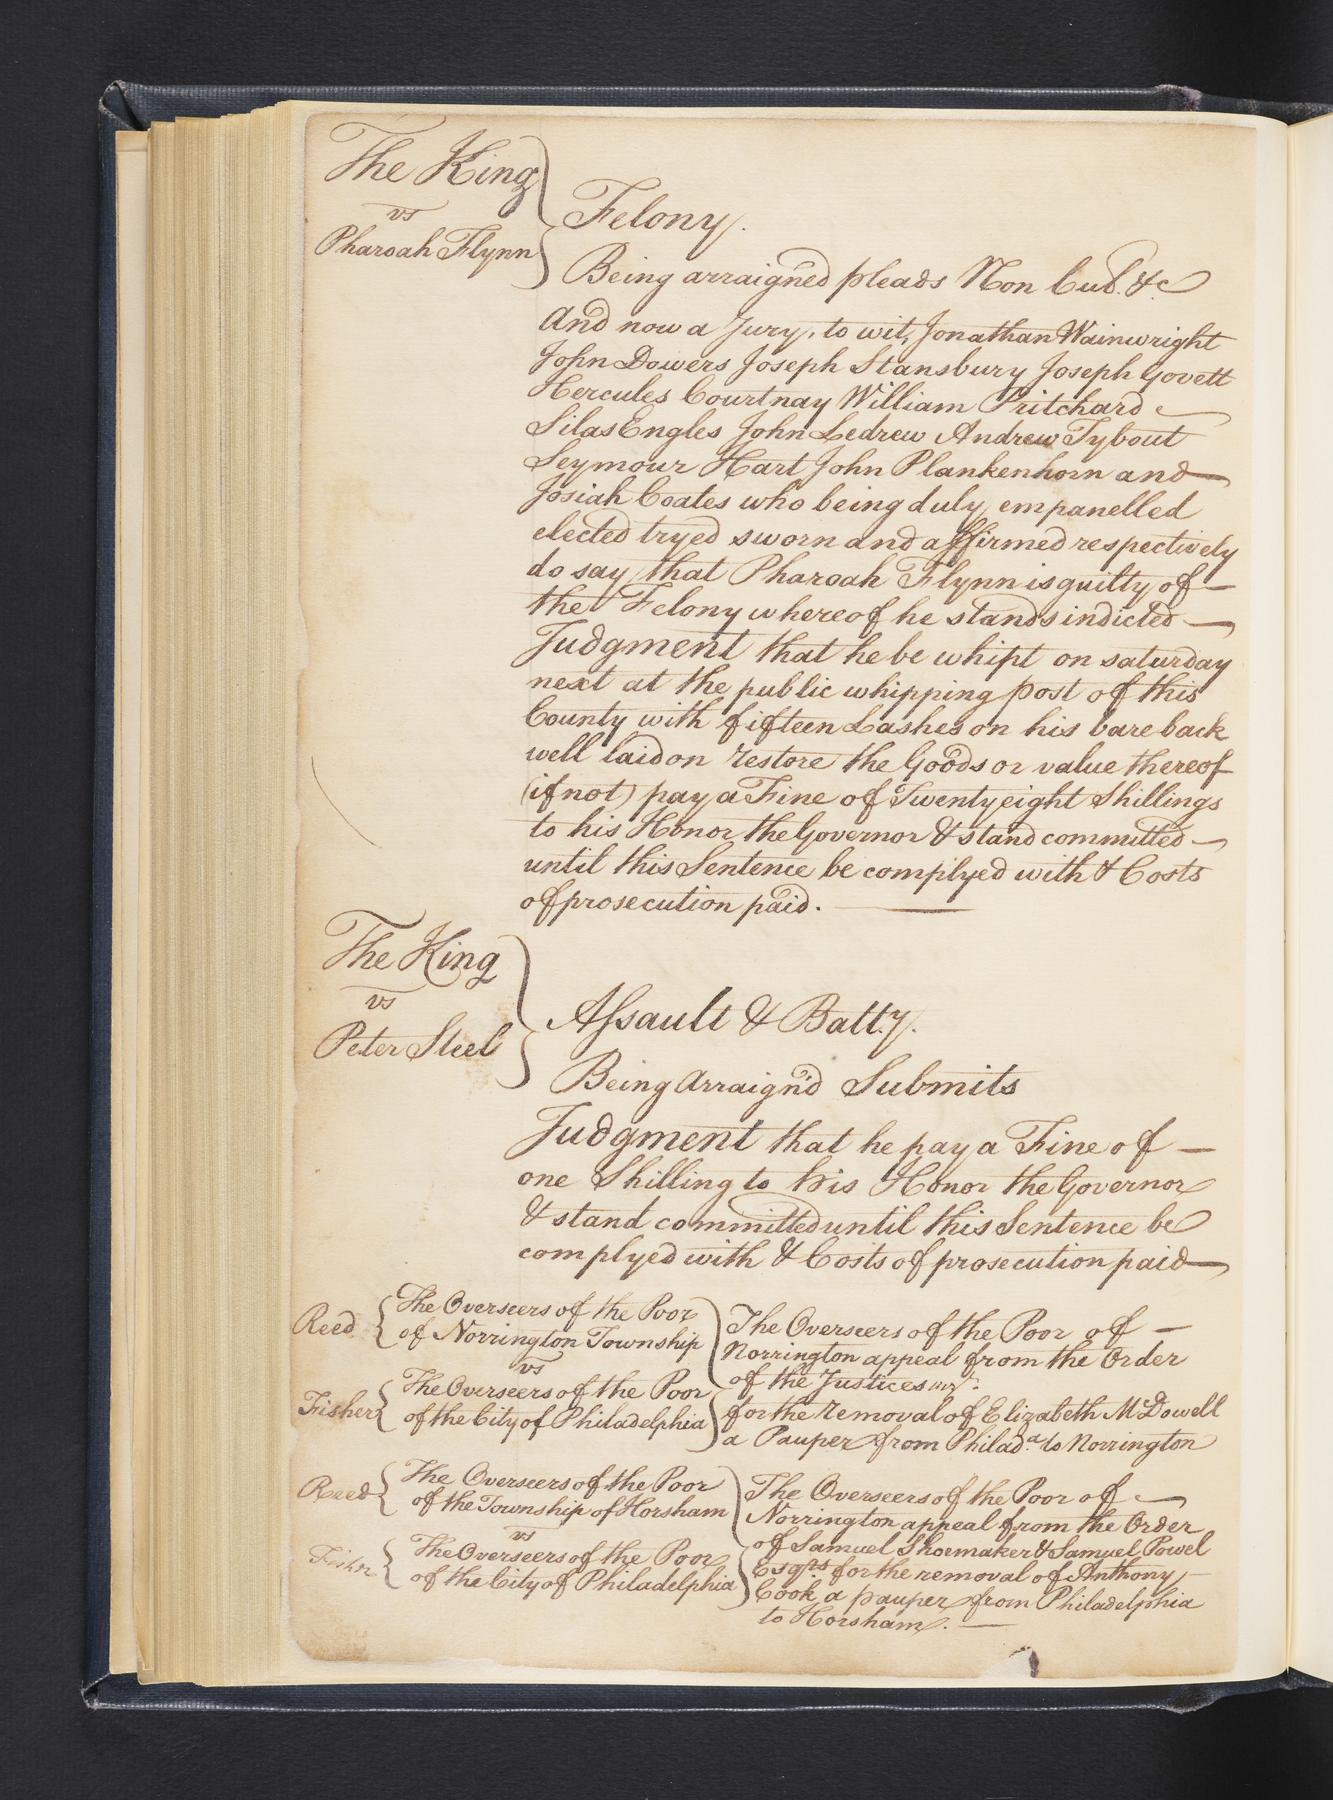 The King
vs
Pharoah Flynn
Felony.
Being arraigned pleads Non Cul. &c
And now a Jury, to wit, Jonathan Wainwright
John Dowers Joseph Stansbury Joseph Govett
Hercules Courtnay William Pritchard
Silas Engles John Ledrew Andrew Tybout
Seymour Hart John Plankenhorn and
Josiah Coates who being duly empanelled
elected tryed sworn and affirmed respectively
do say that Pharoah Flynn is guilty of
the Felony whereof he stands indicted
Judgment that he be whipt on saturday
next at the public whipping post of this
County with fifteen Lashes on his bare back
well laid on restore the Goods or value thereof
(if not) pay a Fine of Twenty eight Shillings
to his Honor the Governor & stand committed
until this Sentence be complyed with & Costs
of prosecution paid.
The King
vs
Peter Steel
Assault & Batt.y.
Being Arraign'd Submits
Judgment that he pay a Fine of
one Shilling to his Honor the Governor
& stand committed until this Sentence be
complyed with & Costs of prosecution paid
Reed
The Overseers of the Poor
of Norrington Township
vs
Fisher
The Overseers of the Poor
of the City of Philadelphia
The Overseers of the Poor of
Norrington appeal from the Order
of the Justices
for the removal of Elizabeth McDowell
a Pauper from Philad.a to Norrington
Reed
The Overseers of the Poor
of the Township of Horsham
vs
The Overseers of the Poor
of the City of Philadelphia
The Overseers of the Poor of
Norrington appeal from the Order
of Samuel Shoemaker & Samuel Powel
Esqrs for the removal of Anthony
Cook a pauper from Philadelphia
to Horsham.